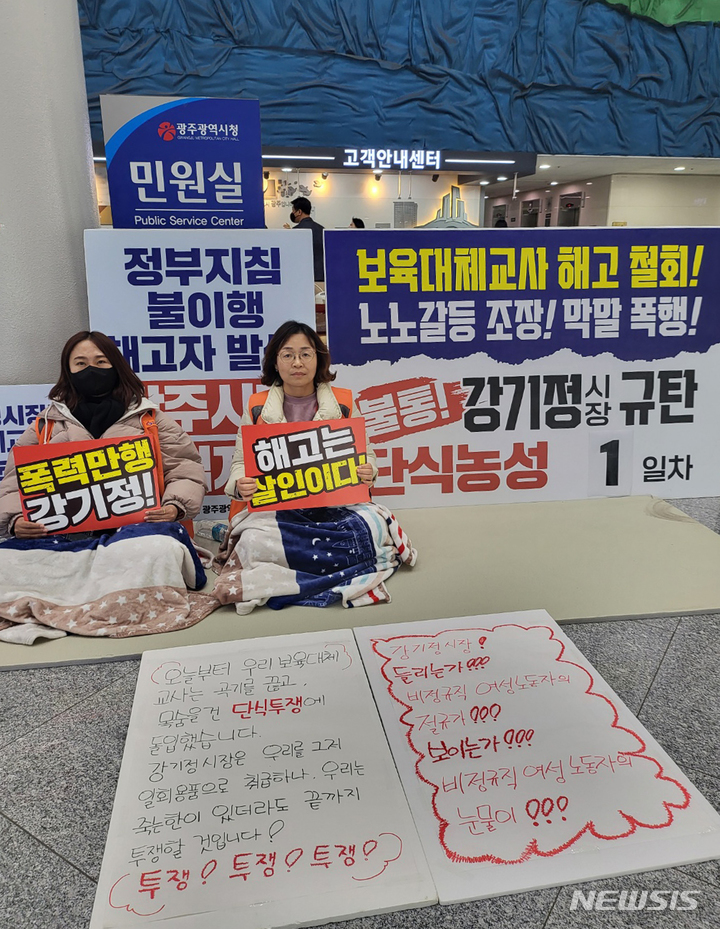 광주광역시청
GWANGJU METROPOLITAN CITY HALL
민원실
Public Service Center
고객안내센터
정부지침
불이행
해고자 발
보육대체교사 해고 철회!
노노갈등 조장! 막말 폭행!
불통! 강기정 시장 규탄
단식농성 1 일차
폭력만행
강기정!
해고는
살인이다!
오늘부터 우리 보육대체
교사는 곡기를 끊고
목숨을건 단식투쟁에
돌입했습니다.
강기정시장은 우리를 그저
일회용품으로 취급하나. 우리는
죽는한이 있더라도 끝까지
투쟁할 것입니다!
투쟁! 투쟁! 투쟁!
강기정시장!
들리는가???
비정규직 여성노동자의
절규가???
보이는가???
비정규직 여성 노동자의
눈물이???
NEWSIS
newsis